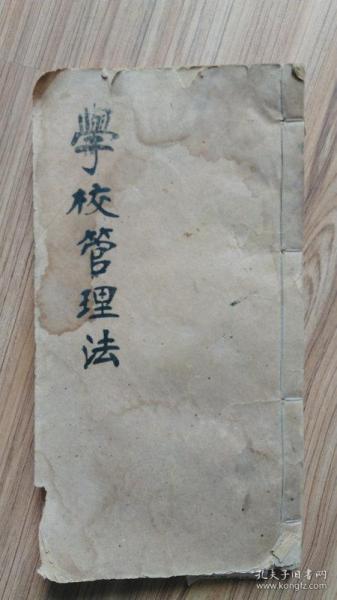 學校管理法
孔夫子旧书网
www.kongfz.com